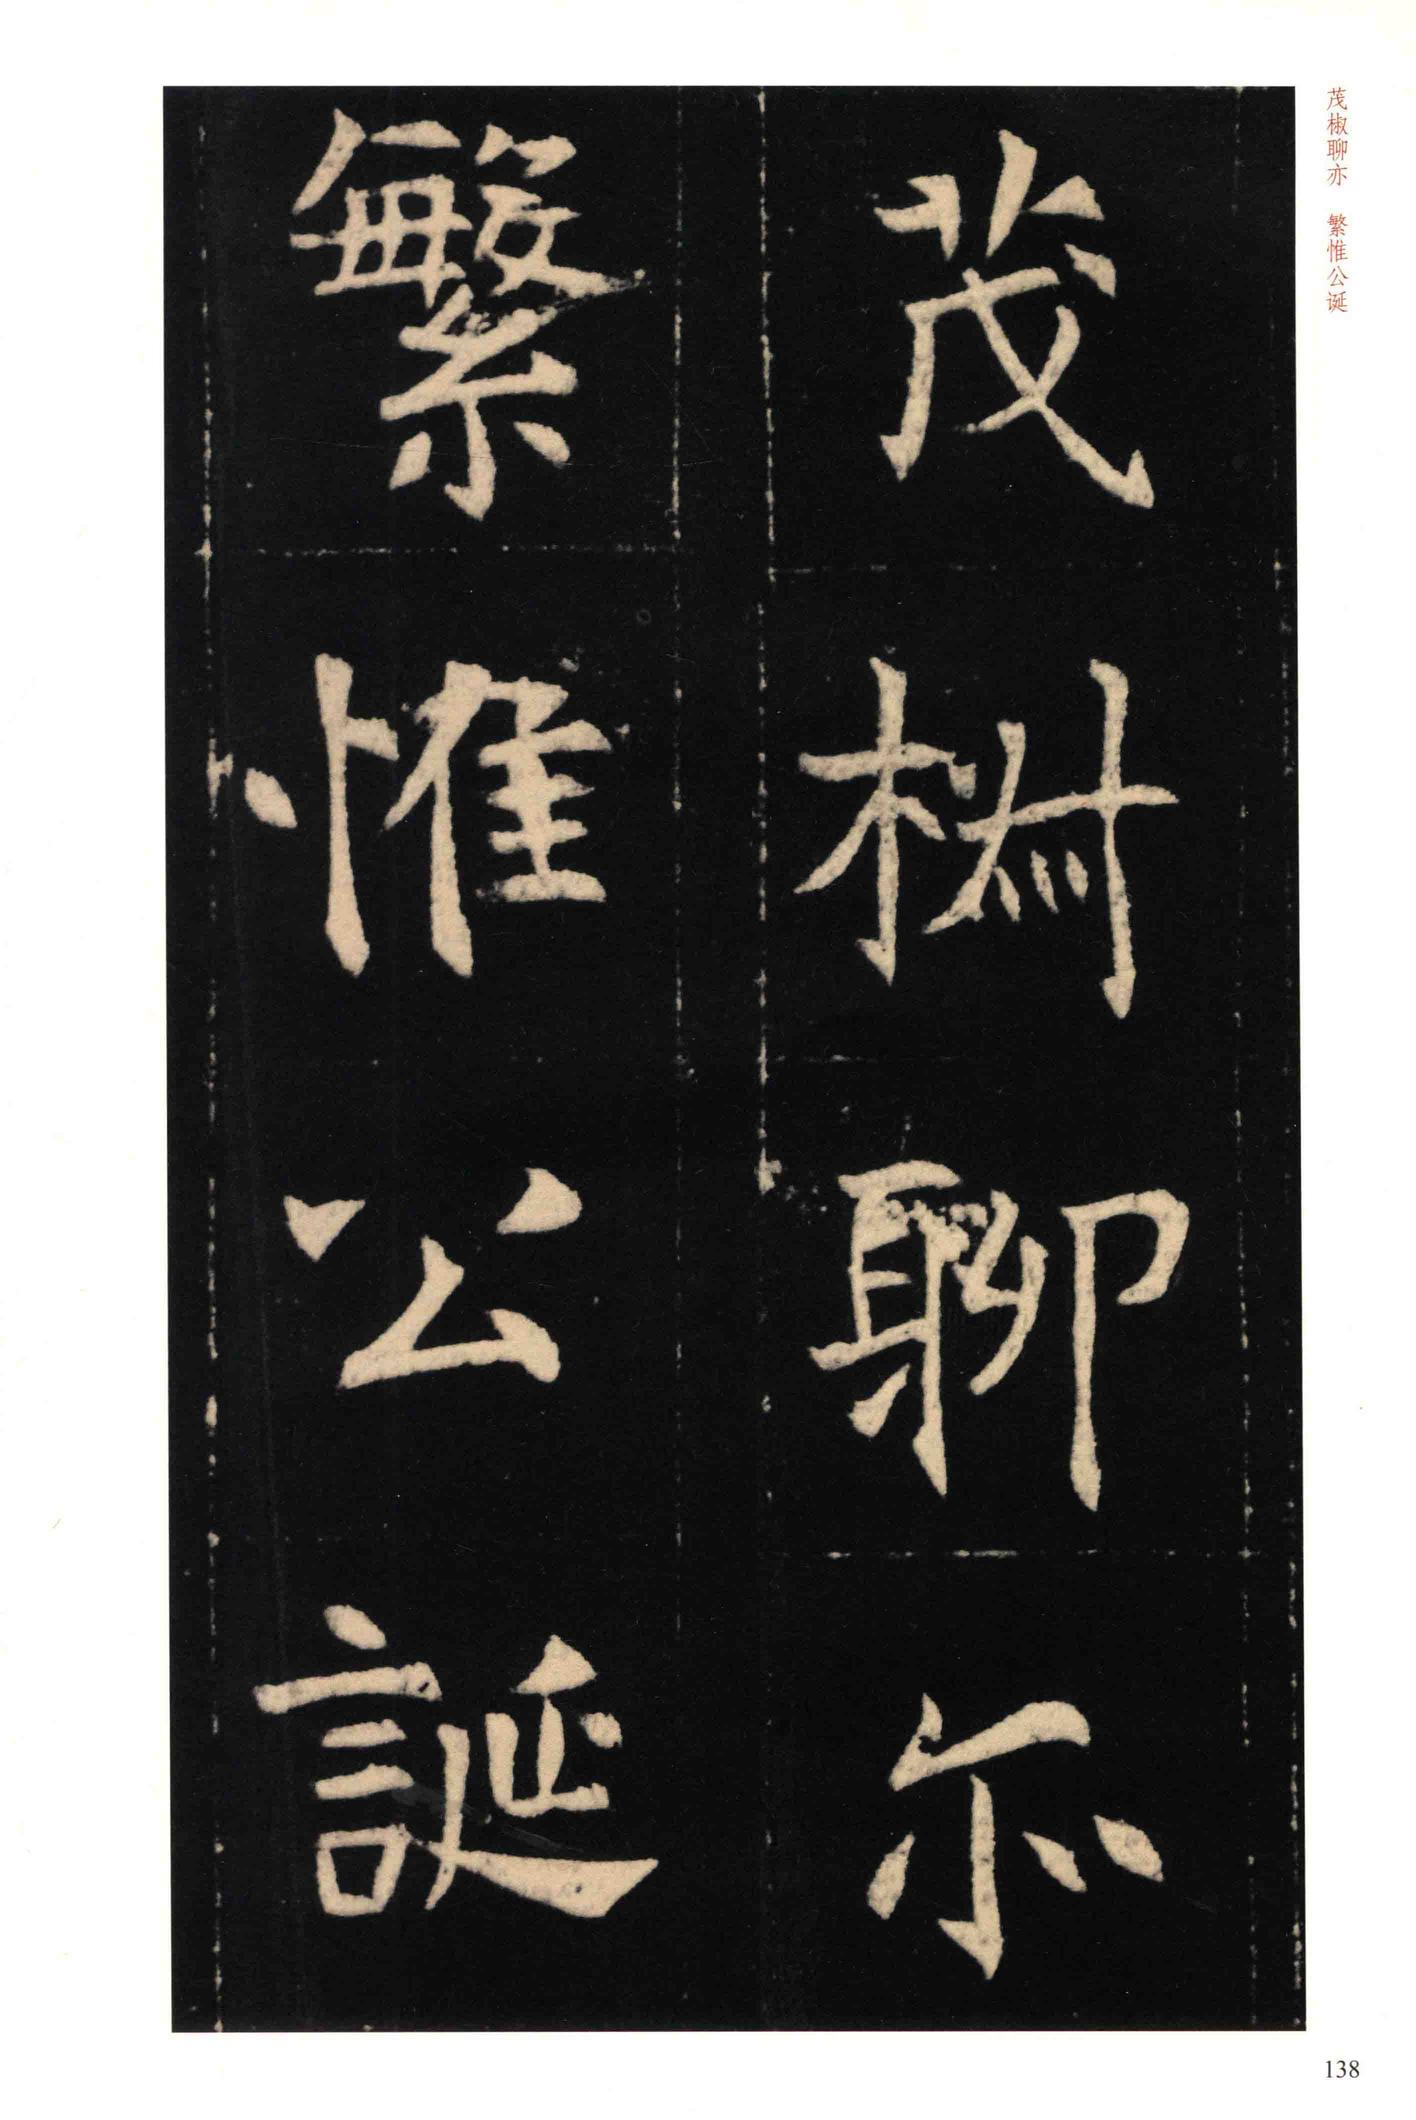 茂椒聊亦
繁惟公誕
茂椒聊亦 繁惟公诞
138